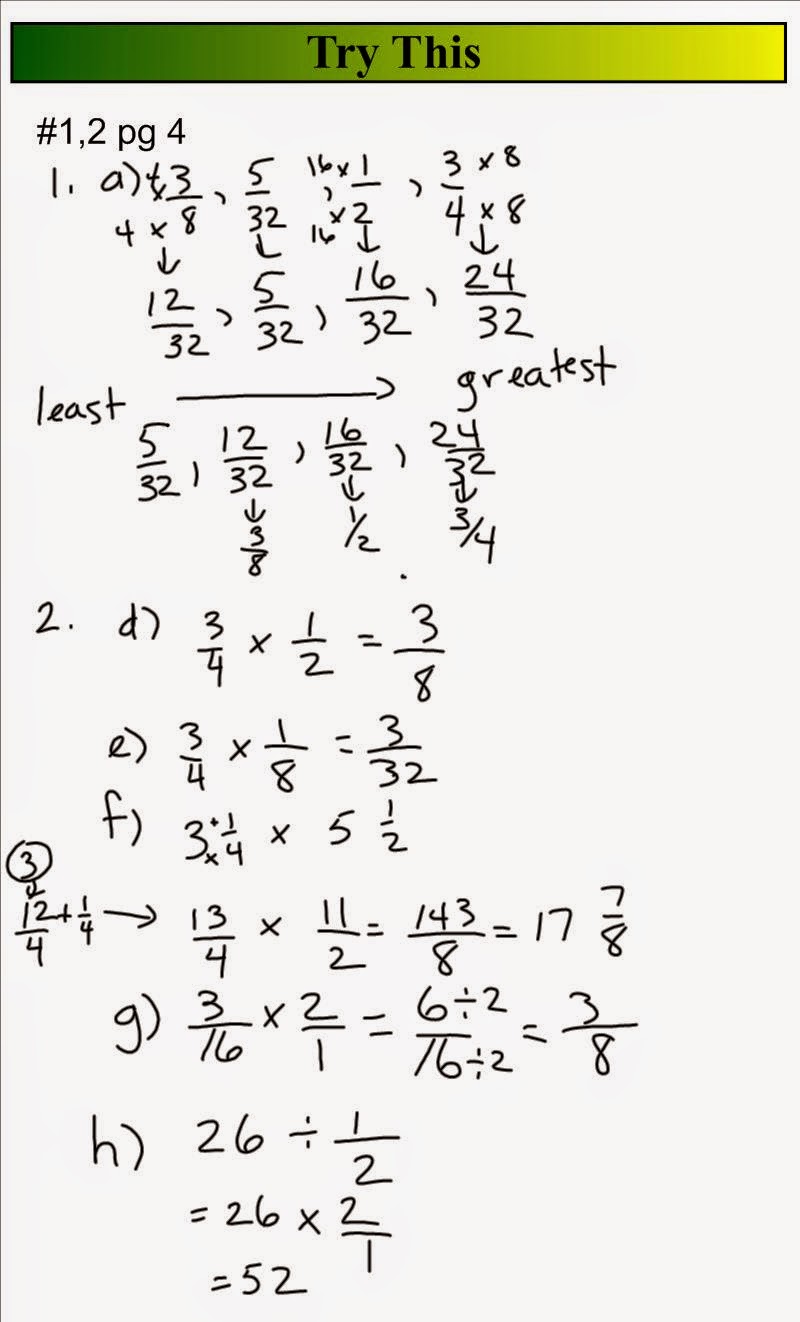 Try This
#1,2 pg 4
1. a) 4×3/4×8, 5/32, 16×1/16×2, 3×8/4×8
↓ ↓ ↓ ↓
12/32, 5/32, 16/32, 24/32
least → greatest
5/32, 12/32, 16/32, 24/32
↓ ↓ ↓
3/8 1/2 3/4
2. d) 3/4 × 1/2 = 3/8
e) 3/4 × 1/8 = 3/32
f) 3 + 1/× 4 × 5 1/2
3
↓
12/4 + 1/4 → 13/4 × 11/2 = 143/8 = 17 7/8
g) 3/16 × 2/1 = 6÷2/16÷2 = 3/8
h) 26 ÷ 1/2
= 26 × 2/1
= 52